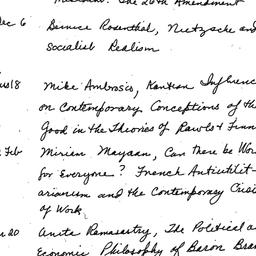 The 26th Amendment
Dec 6 Bernice Rosenthal, Nietzsche and
Socialist Realism
18 Mike Ambrosio, Kantean Influence
on Contemporary Conceptions of the
Good in the Theories of Rawls & Finn
Feb Miriam Mayaan, Can there be Wor
for Everyone? French Antiutilit-
arianism and the Contemporary Crisi
of Work.
20 Anita Ramasastry, The Political a
Economic Philosophy of Baron Bra